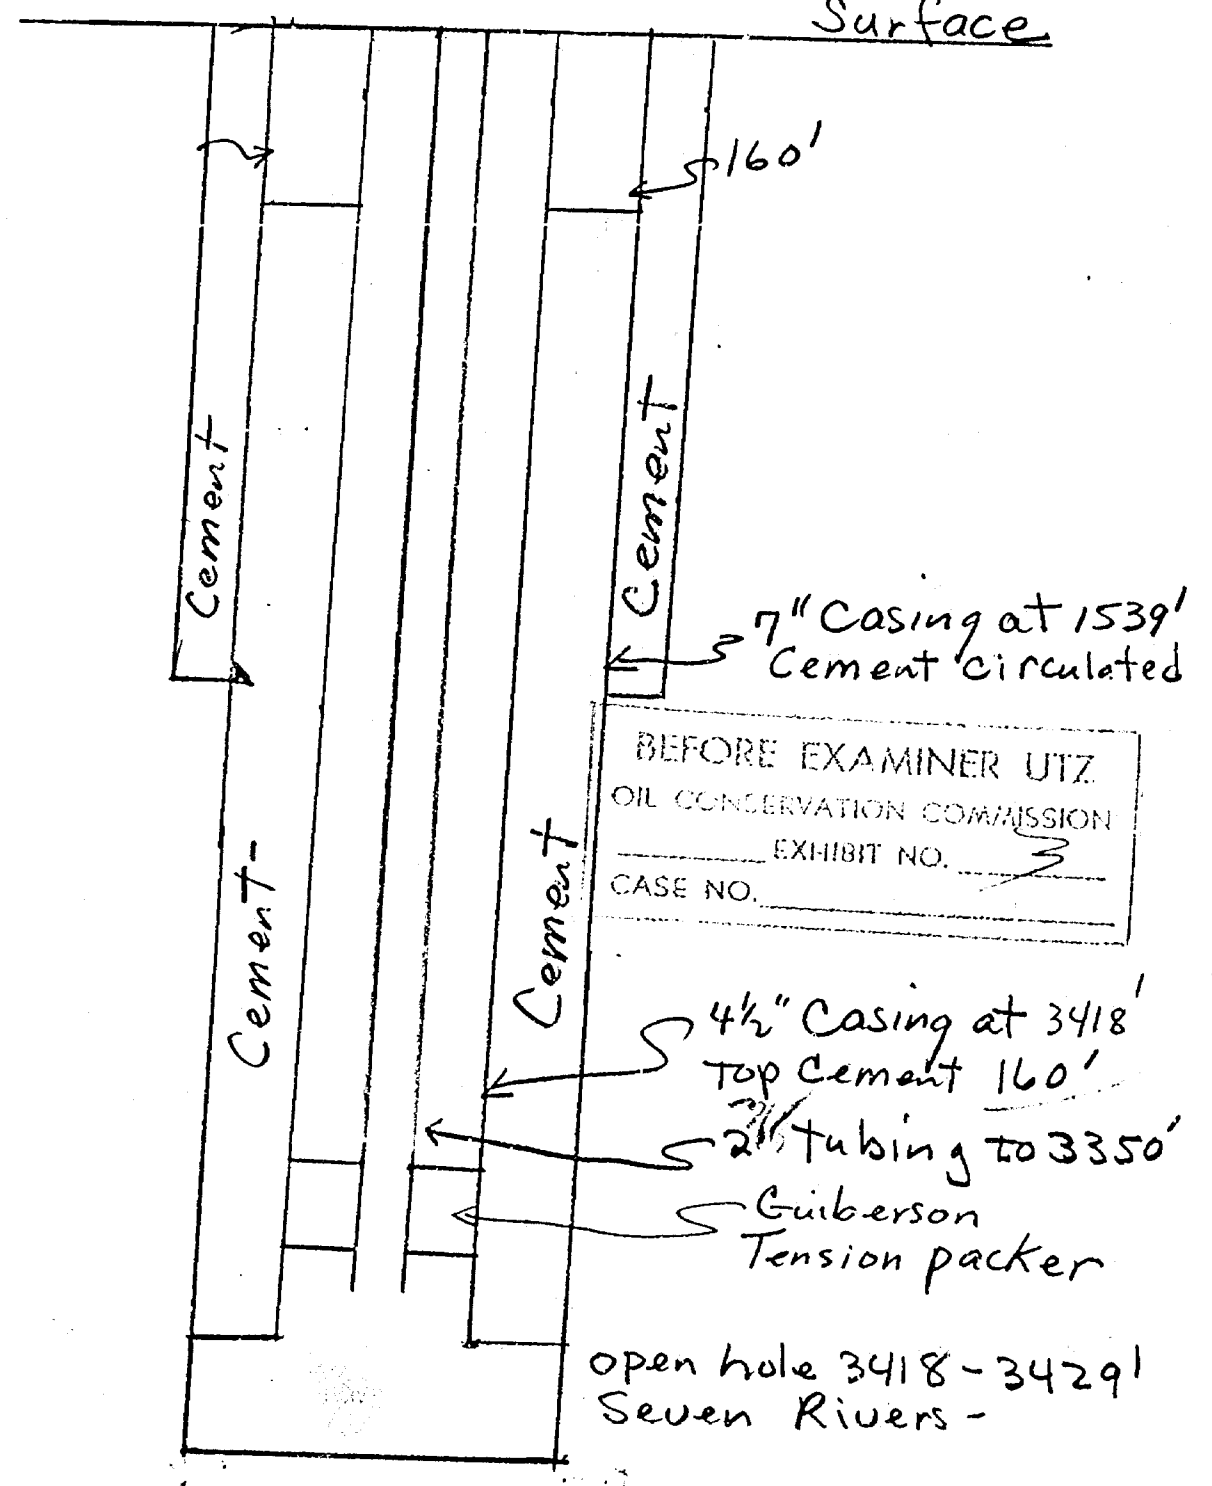 Surface
160'
Cement
Cement
7" Casing at 1539'
Cement circulated
BEFORE EXAMINER UTZ
OIL CONSERVATION COMMISSION
EXHIBIT NO. 3
CASE NO.
Cement-
Cement
4½" Casing at 3418'
Top Cement 160'
tubing to 3350'
Guiberson
Tension packer
open hole 3418-3429'
Seven Rivers-